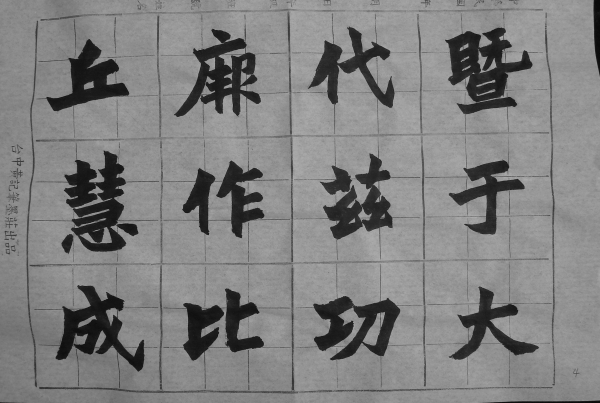 暨于大
代茲功
厥作比
丘慧成
台中黃記筆墨莊出品
4